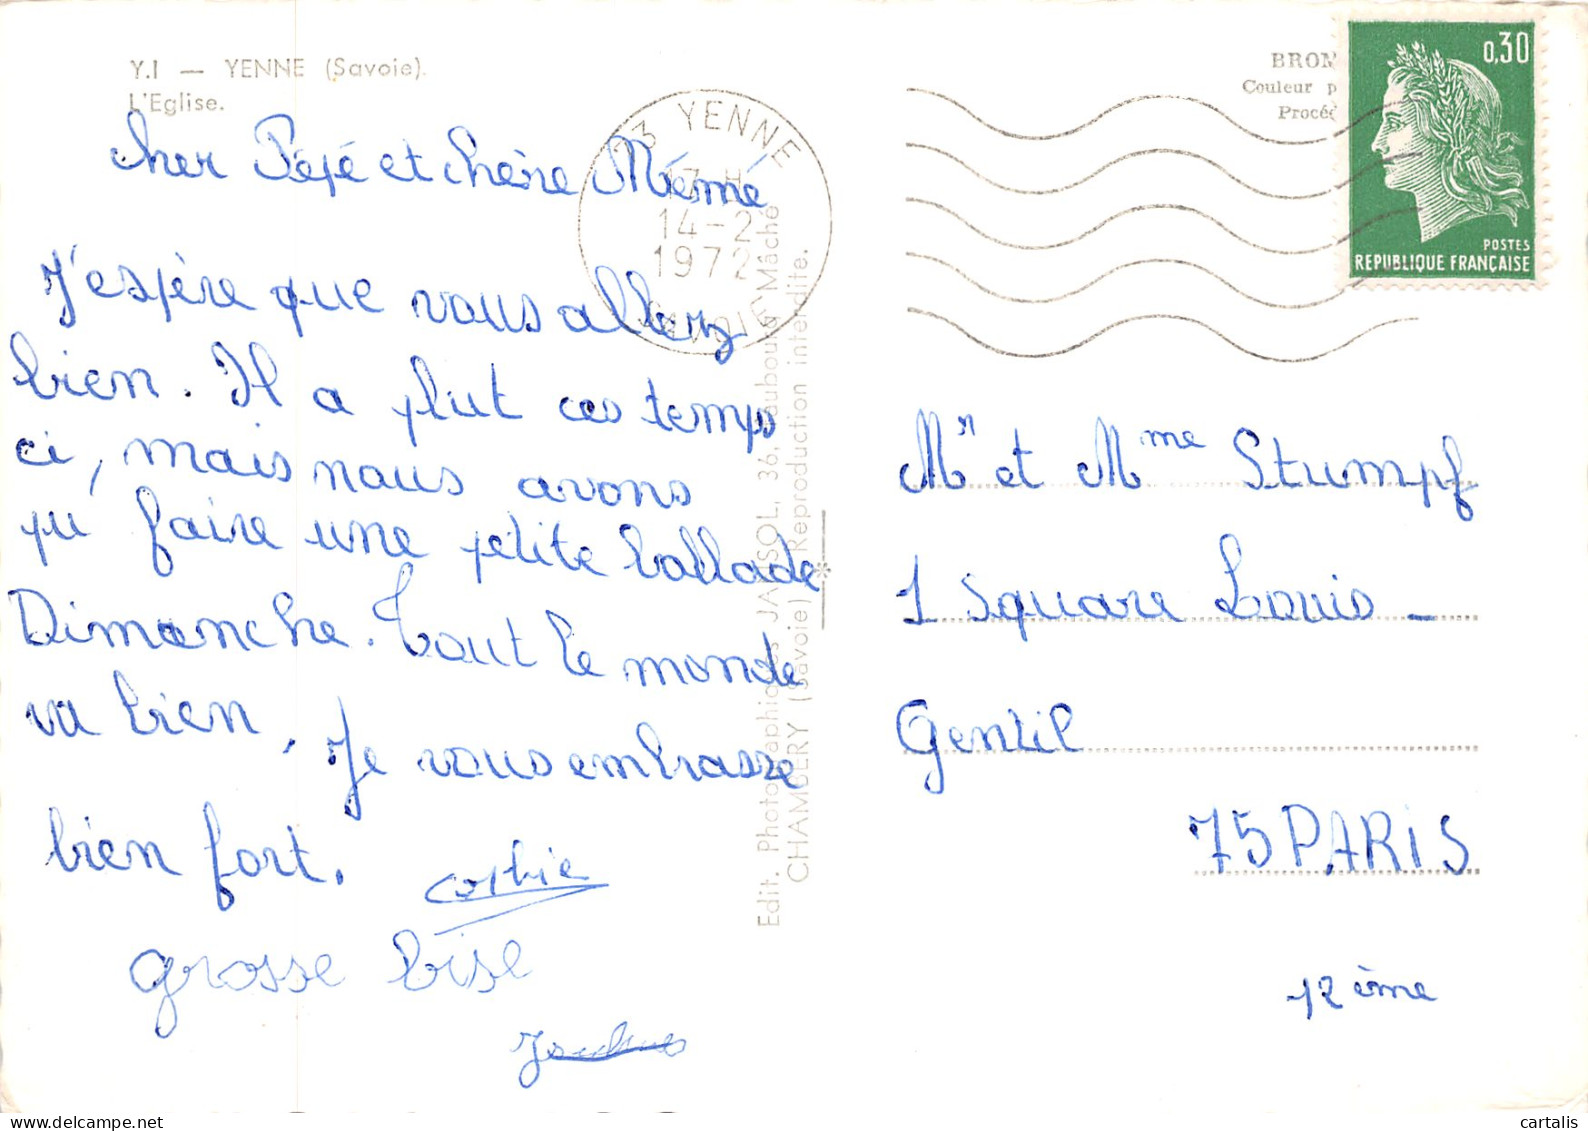 Y.I — YENNE (Savoie).
L'Eglise.
cher Pépé et chère Mémé
J'espère que vous allez
bien. Il a plut ces temps
ci, mais nous avons
pu faire une petite ballade
Dimanche. Tout le monde
va bien, Je vous embrasse
bien fort.
grosse bise
73 YENNE
17 H
14-2
1972
SAVOIE
Edit. Photographiques JANSOL, 36, Faubourg Mâché
CHAMBERY (Savoie) Reproduction interdite.
BROM
Couleur p
Procéd
0,30
POSTES
REPUBLIQUE FRANÇAISE
Mr et Mme Stumpf
1 Square Louis -
Gentil
75 PARIS
12ème
cartalis